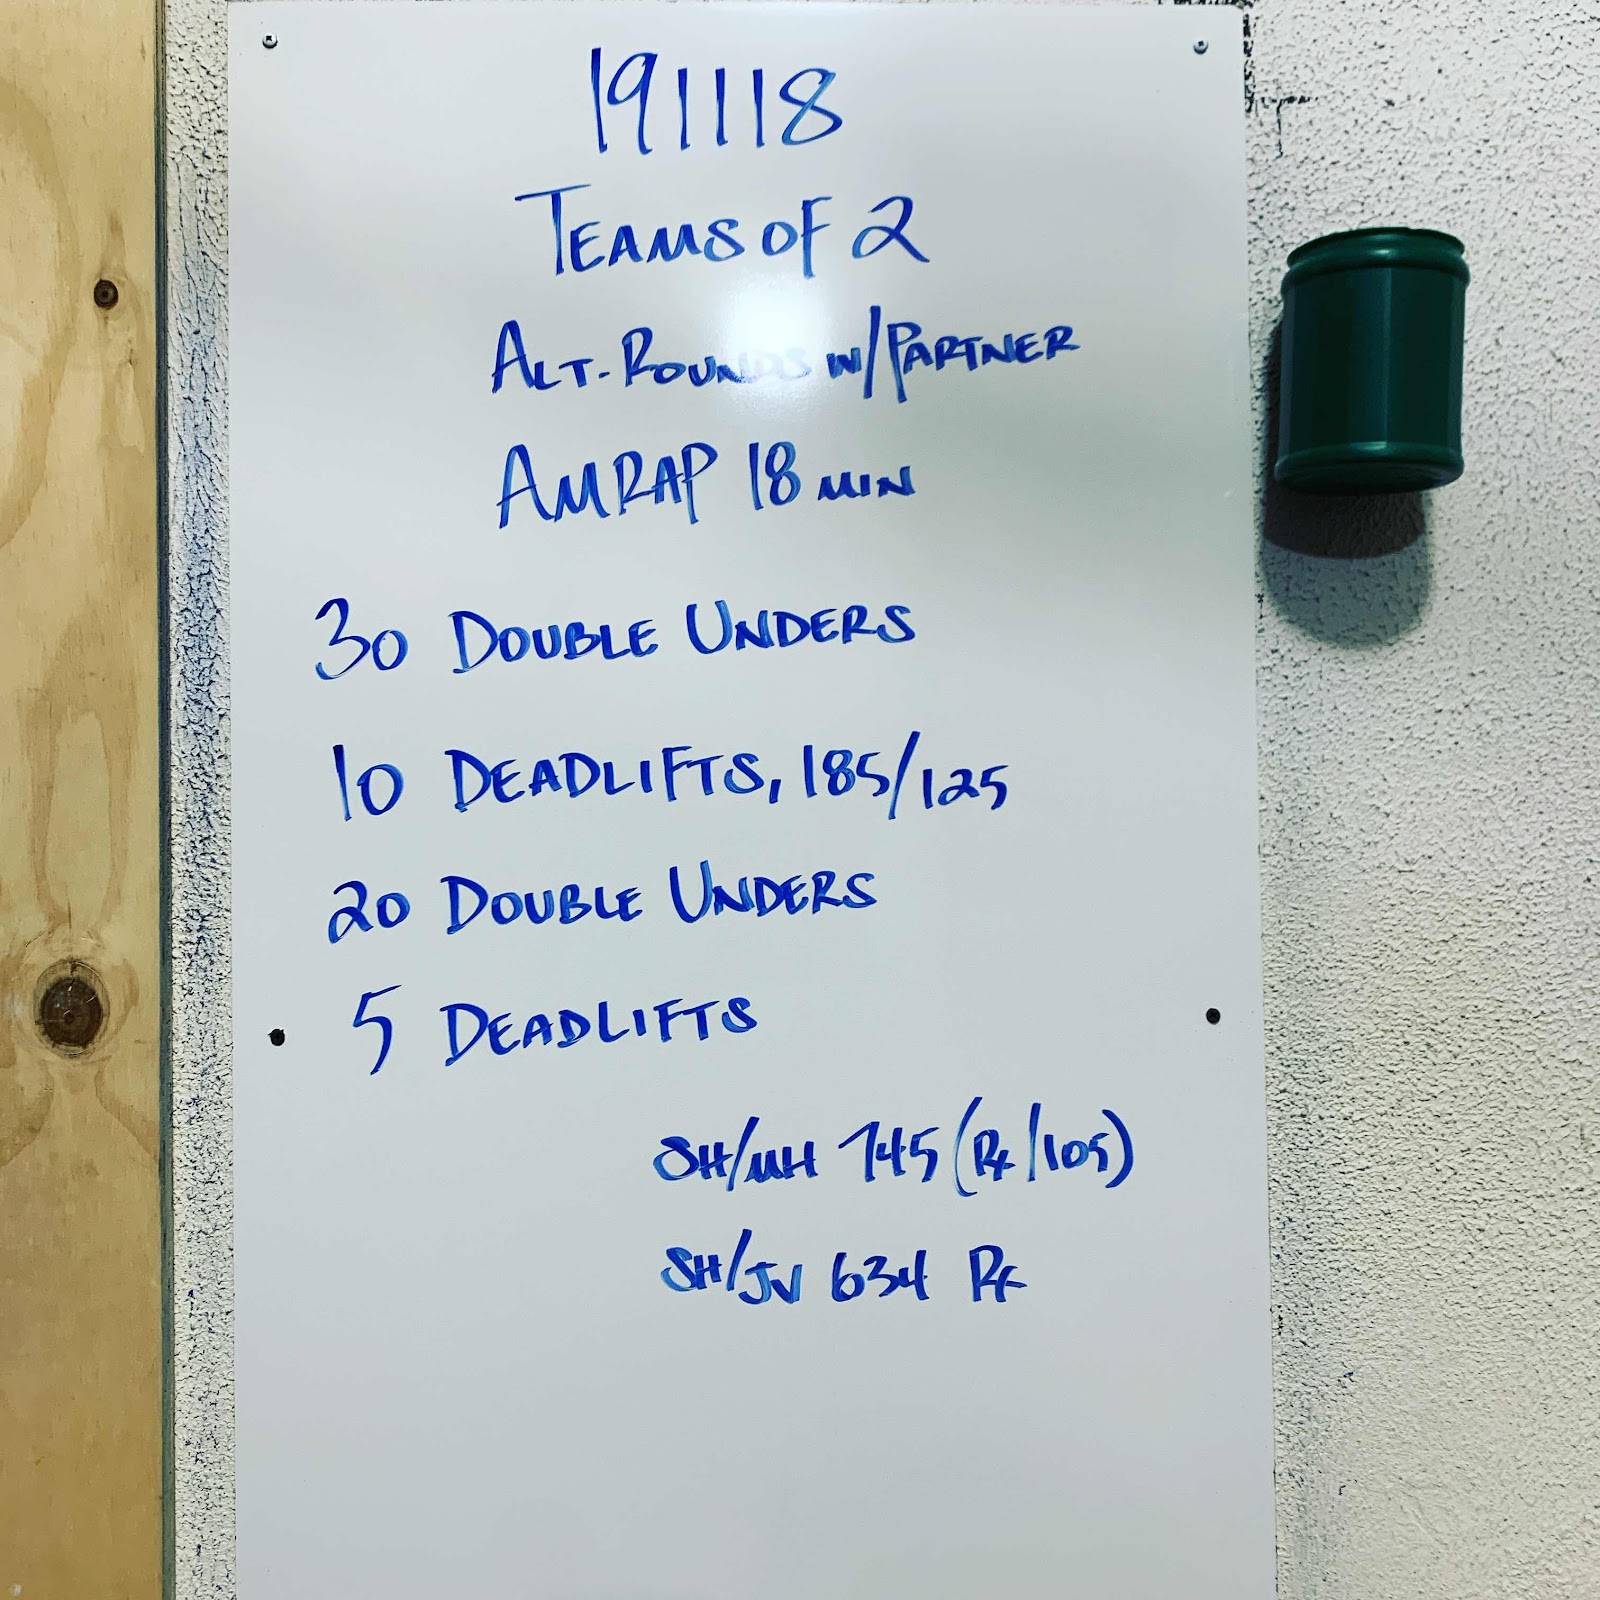 191118
TEAMS OF 2
ALT. ROUNDS W/PARTNER
AMRAP 18 MIN
30 DOUBLE UNDERS
10 DEADLIFTS, 185/125
20 DOUBLE UNDERS
5 DEADLIFTS
SH/MH 745 (Rx/105)
SH/JV 634 Rx